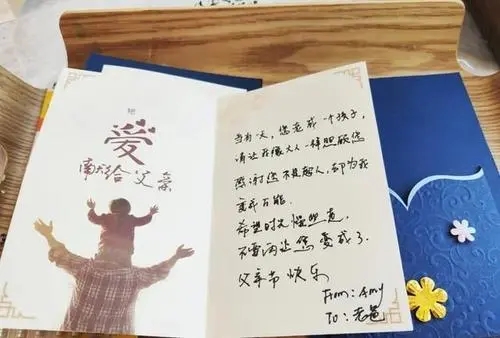 把
爱
献给父亲
当有一天,您老成一个孩子,
请让我像大人一样照顾您
感谢您不是超人,却为我
变成万能.
希望时光慢些走,
不要再让您变老了.
父亲节快乐
From: Amy
To: 老爸